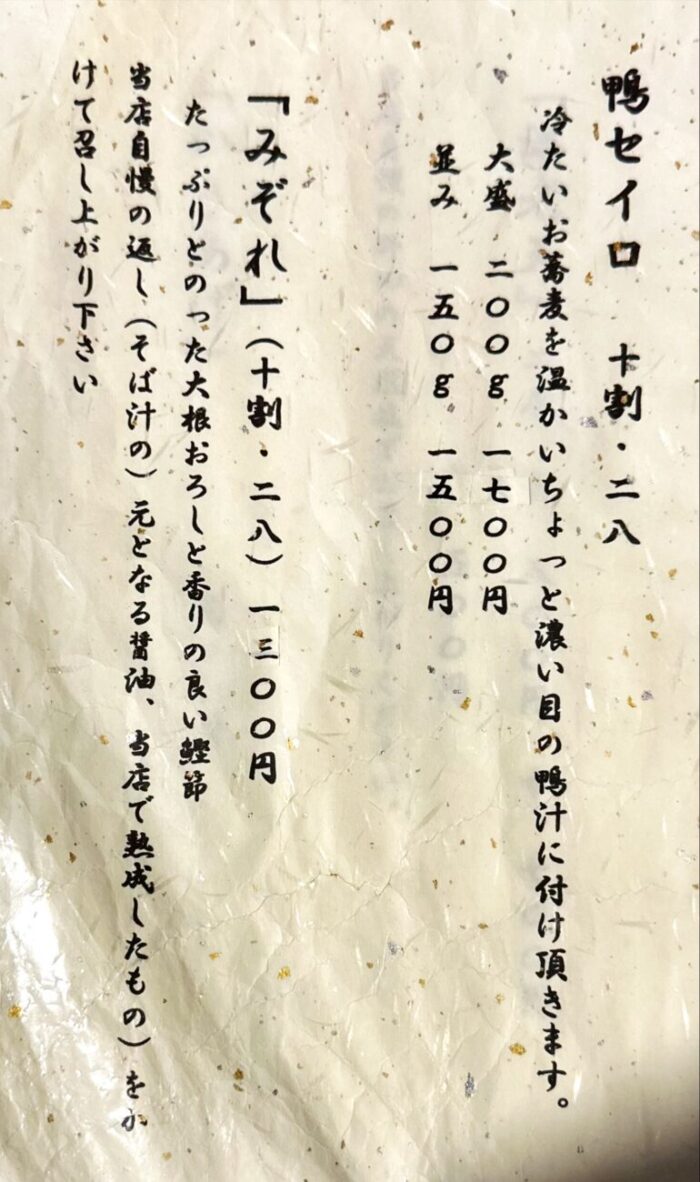 鴨セイロ 十割・二八
冷たいお蕎麦を温かいちょっと濃い目の鴨汁に付け頂きます。
大盛 二〇〇g 一七〇〇円
並み 一五〇g 一五〇〇円
「みぞれ」(十割・二八) 一三〇〇円
たっぷりとのった大根おろしと香りの良い鰹節
当店自慢の返し(そば汁の)元となる醤油、当店で熟成したもの)をか
けて召し上がり下さい